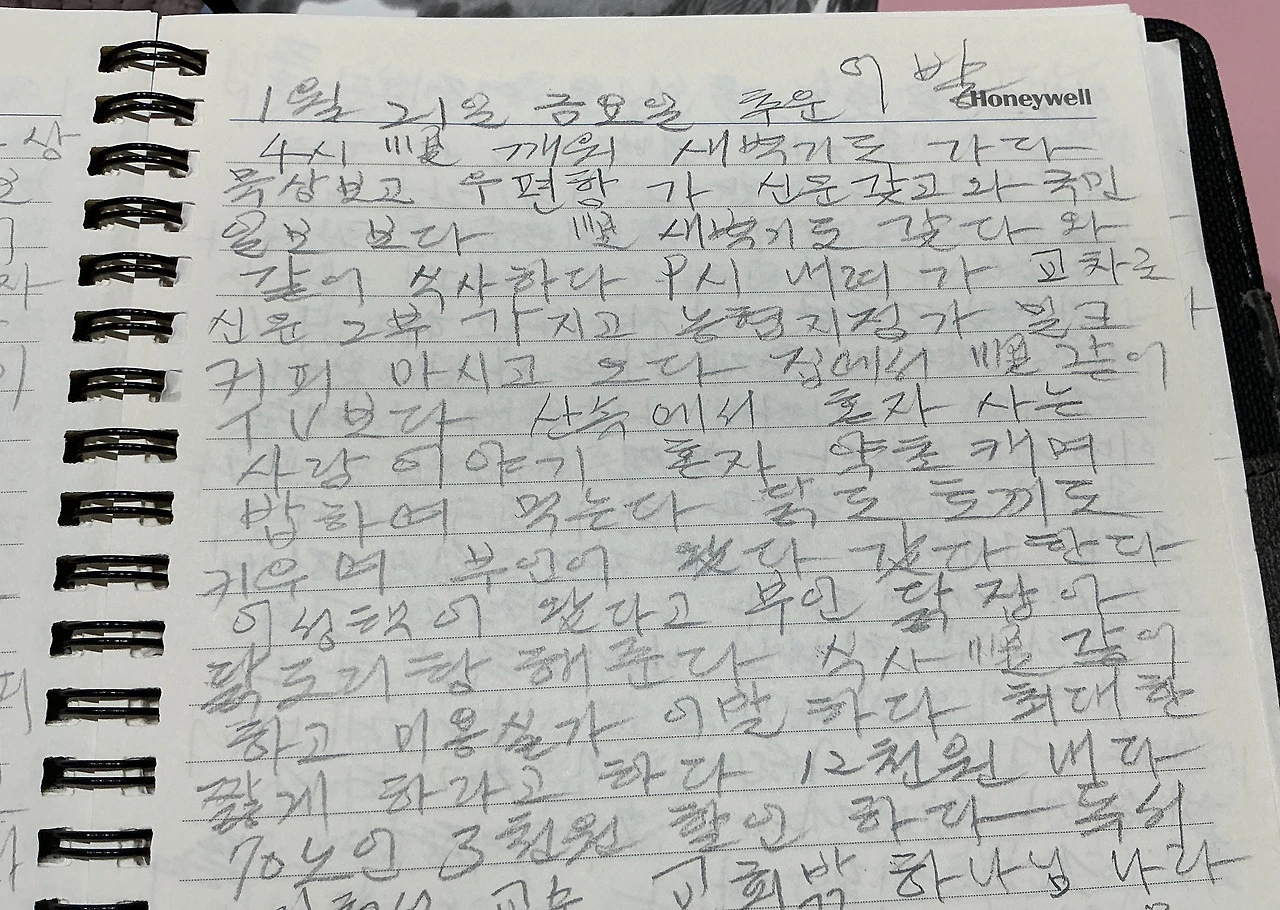 이발
Honeywell
1월 21일 금요일 추운
4시 順 깨워 새벽기도 가다
묵상보고 우편함 가 신문갖고와 국민
일보 보다 順 새벽기도 갔다 와
같이 식사하다 9시 내려가 교차로
신문 2부 가지고 농협지점가 밀크
커피 마시고 오다 집에서 順 같이
TV보다 산속에서 혼자 사는
사람 이야기 혼자 약초 캐며
밥하여 먹는다 닭도 토끼도
키우며 부인이 왔다 갔다 한다
이성택이 왔다고 부인 닭 잡아
닭도리탕 해준다 식사 順 같이
하고 미용실가 이발하다 최대한
짧게 하라고 하다 12천원 내다
70노인 3천원 할인 하다 독서
교회밖 하나님 나라